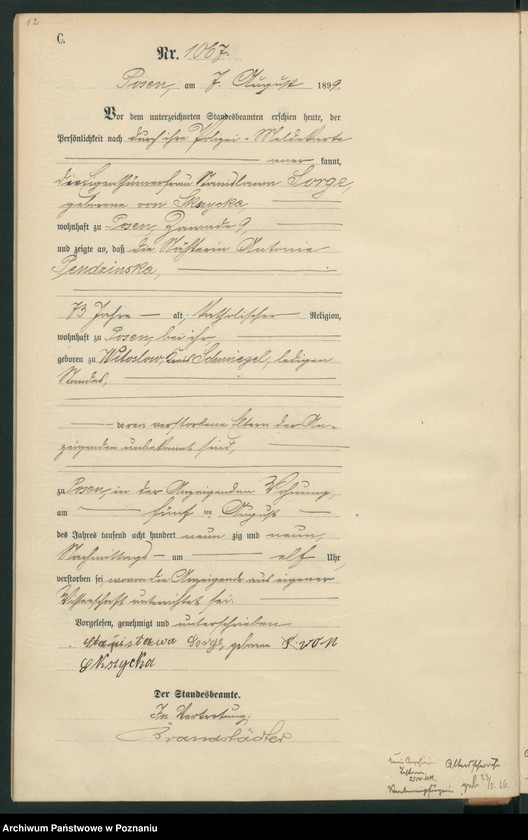 12
C.
Nr. 1067.
Posen, am 7. August 1899.
Vor dem unterzeichneten Standesbeamten erschien heute, der
Persönlichkeit nach durch ihre Polizei-Meldekarte
kannt,
die Eigenthümerfrau Stanislawa Sorge,
geborene von Skrzycka
wohnhaft zu Posen, Zawade 9,
und zeigte an, daß die Näherin Antonie
Pendzinska,
73 Jahre alt, katholischer Religion,
wohnhaft zu Posen, bei ihr,
geboren zu Witoslaw, Kreis Schmiegel, ledigen
Standes,
deren verstorbene Eltern der An-
zeigenden unbekannt sind,
zu Posen, in der Anzeigenden Wohnung,
am fünften August
des Jahres tausend acht hundert neunzig und neun,
Nachmittags um elf Uhr,
verstorben sei, wovon die Anzeigende aus eigener
Wissenschaft unterrichtet sei.
Vorgelesen, genehmigt und unterschrieben
Stanisława Sorge, geborene von
Skrzycka
Der Standesbeamte.
In Vertretung.
Brandstädter
Altersschwäche
geb.
Archiwum Państwowe w Poznaniu